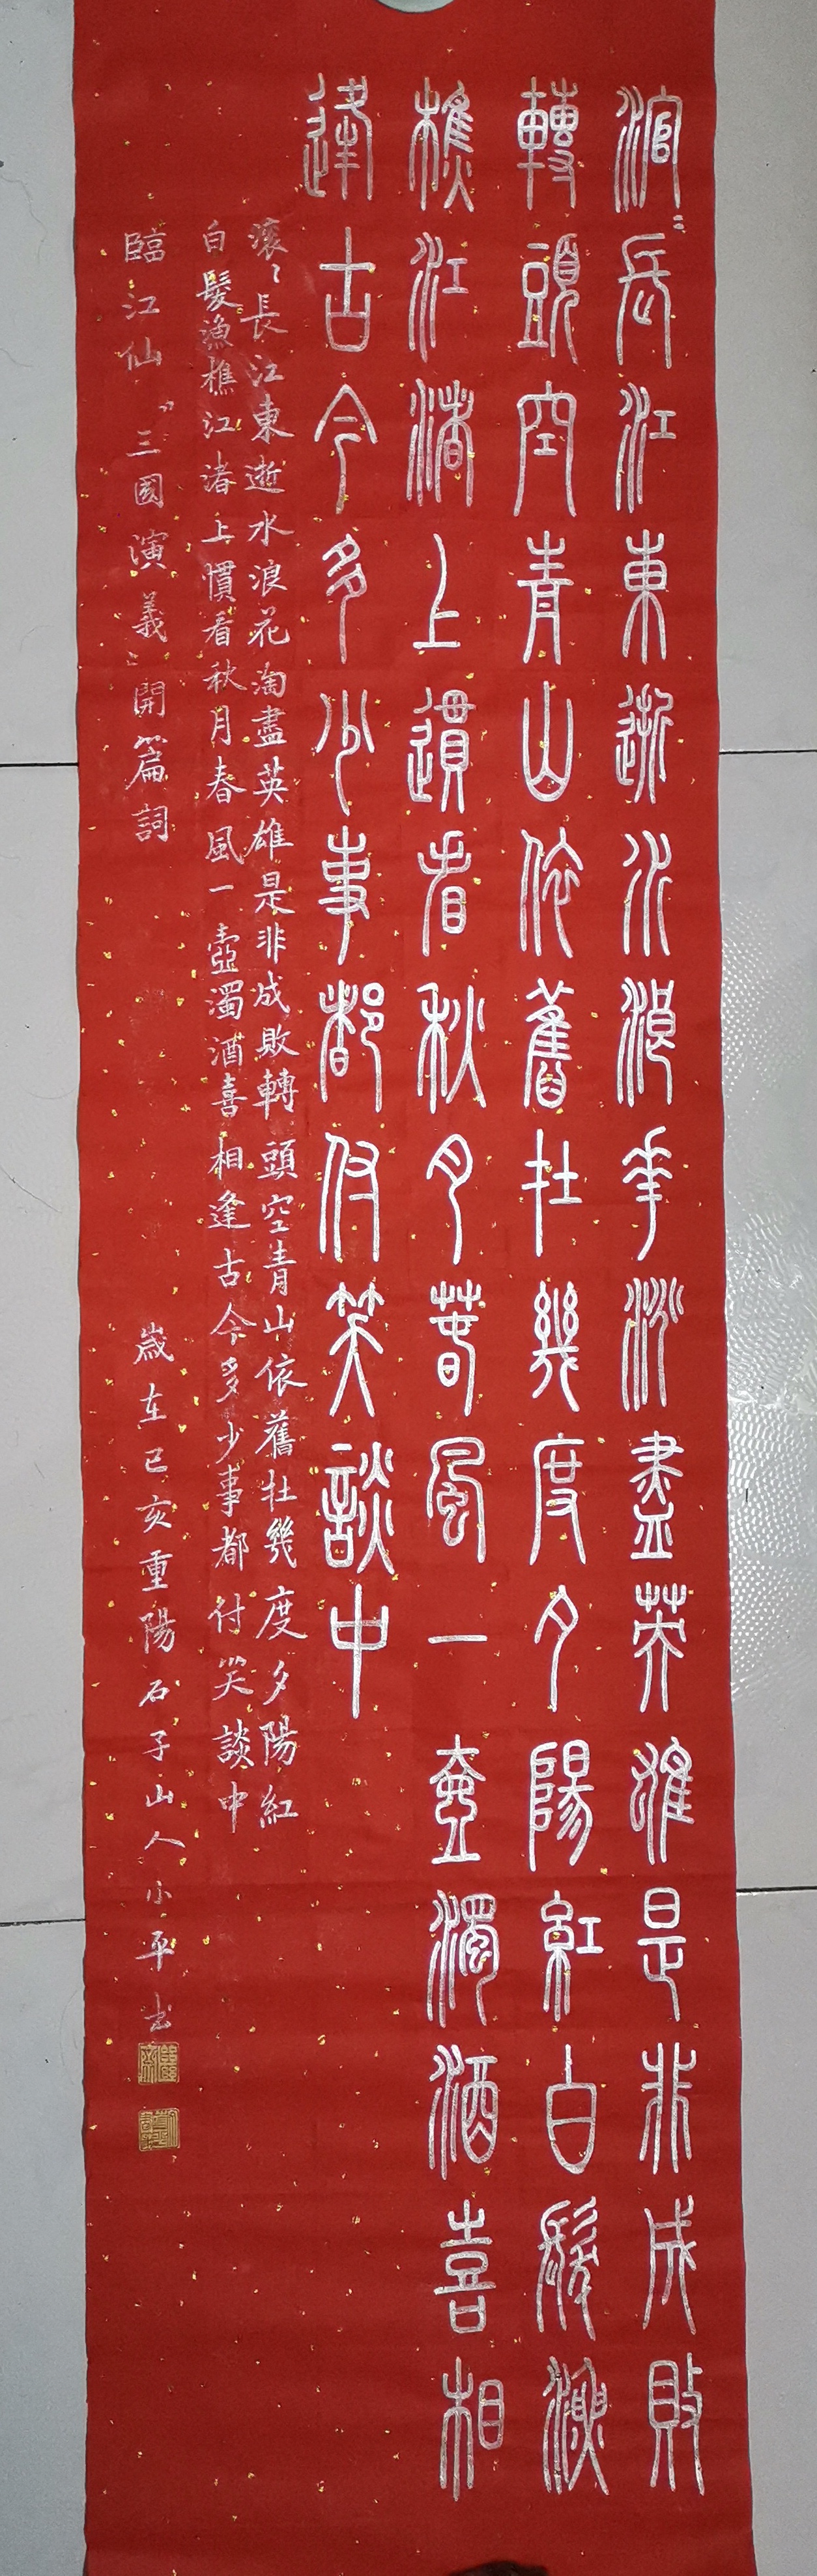 滾〻長江東逝水浪花淘盡英雄是非成敗
轉頭空青山依舊在幾度夕陽紅白髮漁
樵江渚上遺看秋月春風一壺濁酒喜相
逢古今多少事都付笑談中
滾〻長江東逝水浪花淘盡英雄是非成敗轉頭空青山依舊在幾度夕陽紅
白髮漁樵江渚上慣看秋月春風一壺濁酒喜相逢古今多少事都付笑談中
臨江仙〝三國演義〞開篇詞 歲在己亥重陽石子山人小平書